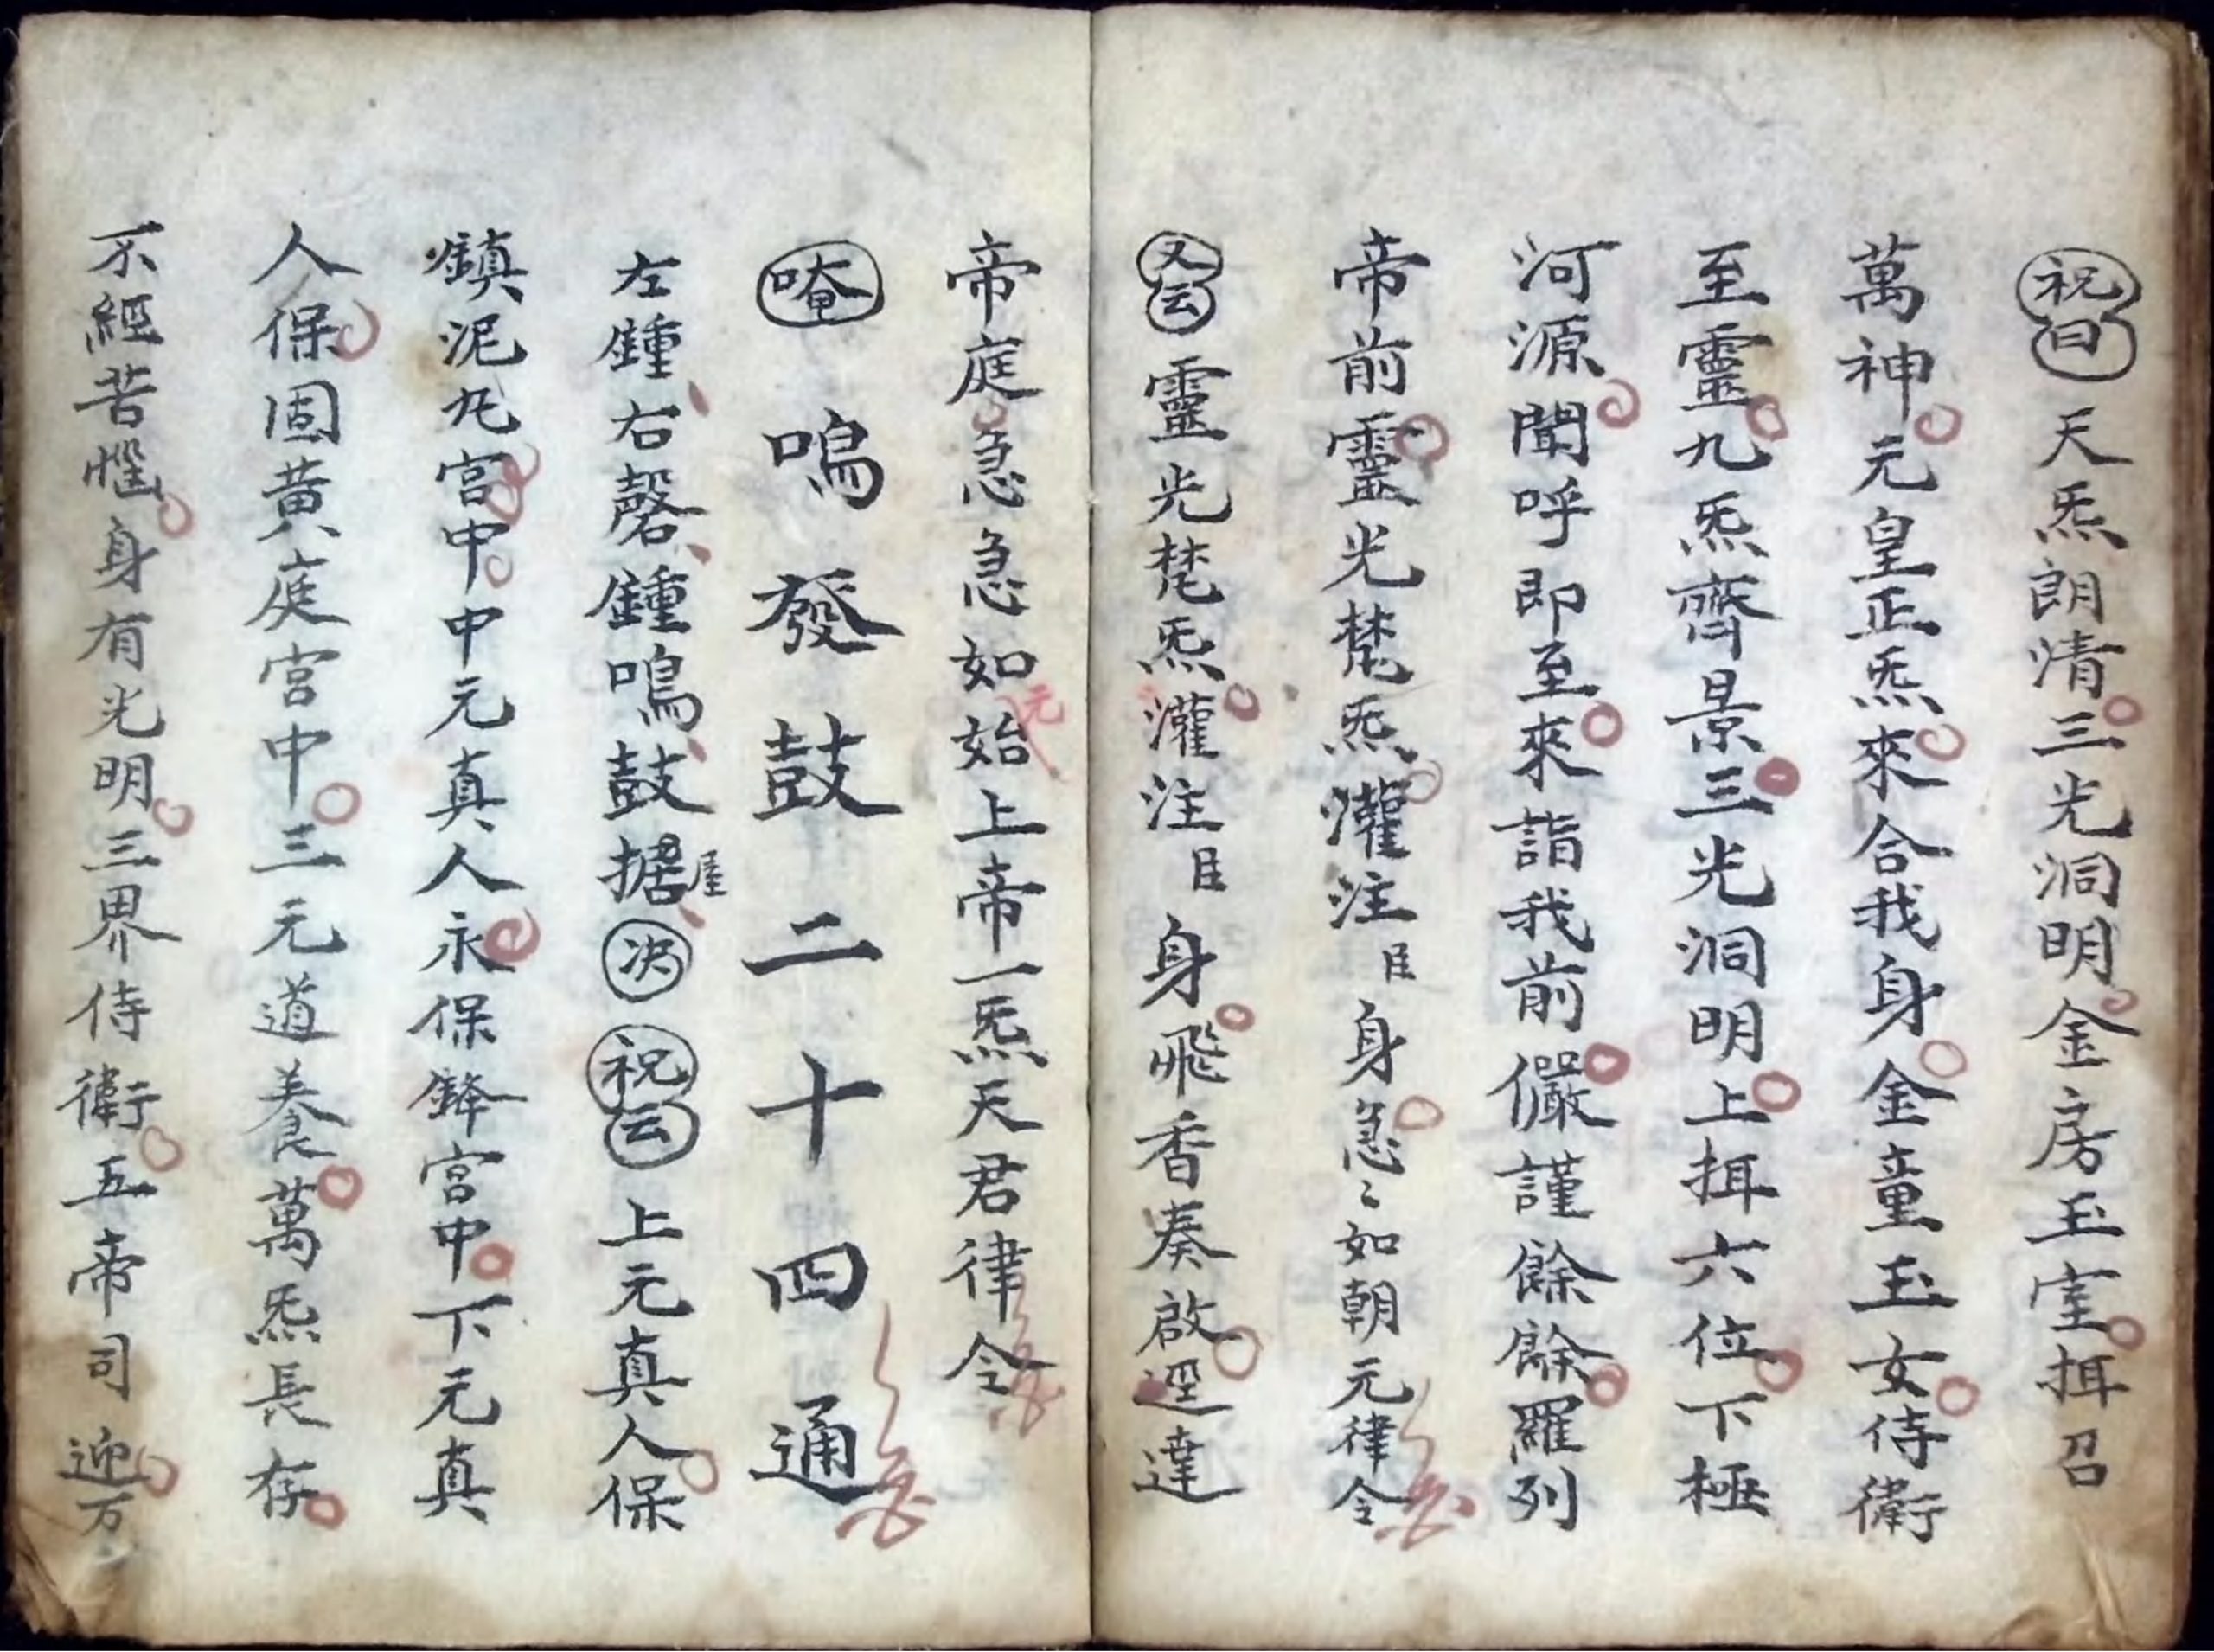 祝曰天炁朗清三光洞明金房玉室揖召
萬神元皇正炁來合我身金童玉女侍衛
至靈九炁齊景三光洞明上揖六位下極
河源聞呼即至來詣我前儼謹餘餘羅列
帝前靈光梵炁灌注臣身急〻如朝元律令
又云靈光梵炁灌注臣身飛香奏啟逕達
帝庭急急如元始上帝一炁天君律令
唵鳴發鼓二十四通
左鍾右磬鍾鳴鼓据屋决祝云上元真人保
鎮泥丸宮中中元真人永保絳宮中下元真
人保固黃庭宮中三元道養萬炁長存
不經苦惱身有光明三界侍衛五帝司迎万